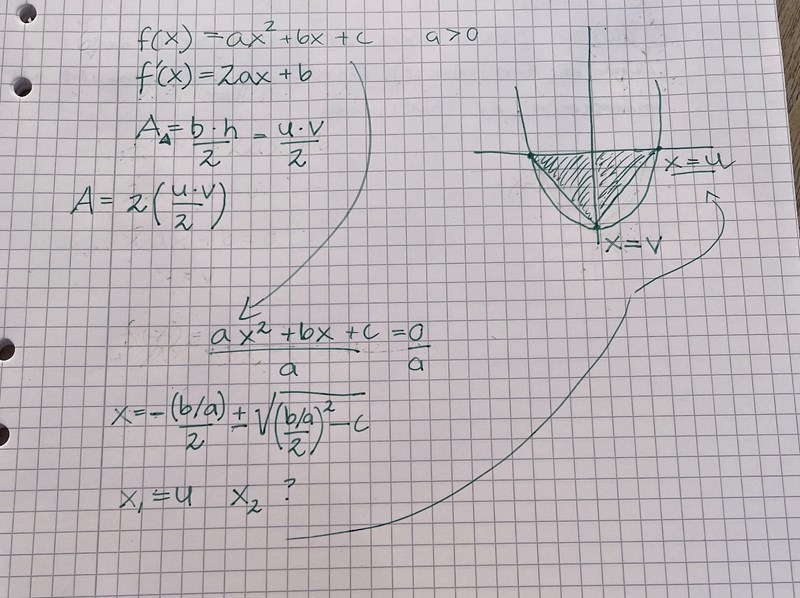 f(x) = ax² + bx + c   a > 0
f'(x) = 2ax + b
A▵ = b·h/2 = u·v/2
A = 2(u·v/2)
x = u
x = v
ax² + bx + c/a = 0/a
x = -(b/a)/2 ± √((b/a/2)² - c
x₁ = u   x₂ ?